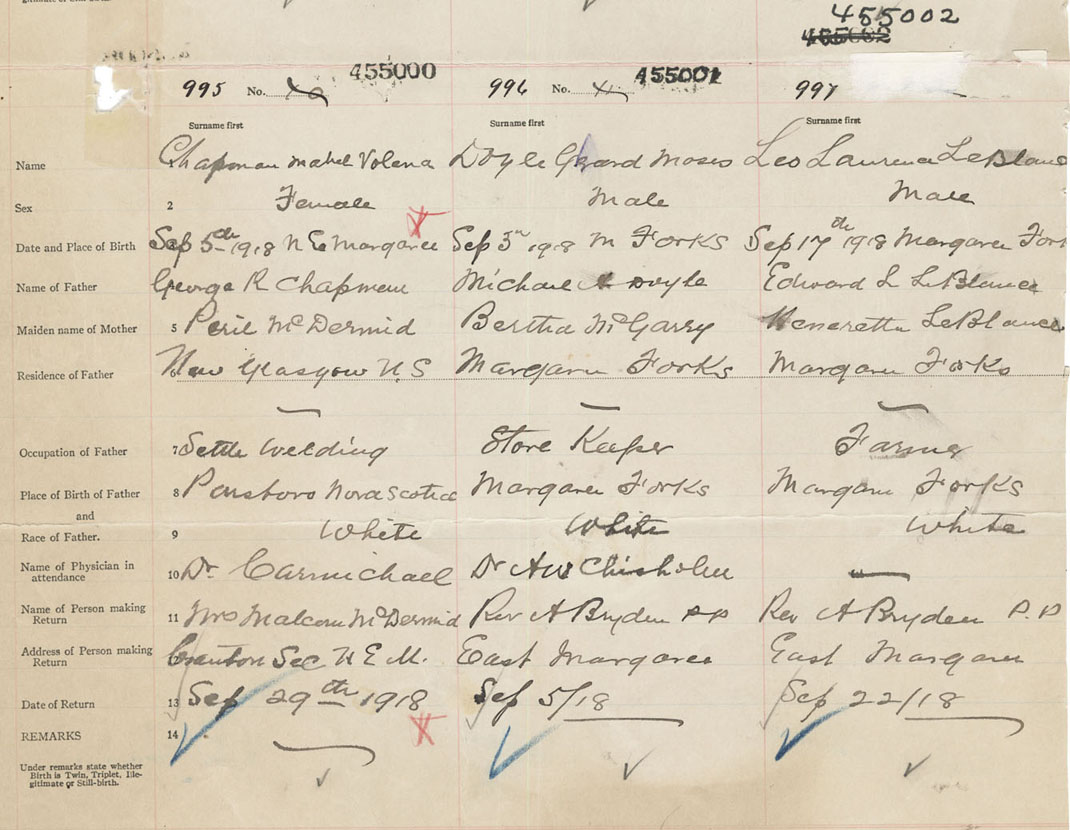 gitimate or Still-birth.
455002
455002
995 No. 455000 996 No. 455001 997
Surname first Surname first Surname first
Name 1 Chapman Mabel Volena Doyle Gerard Moses Leo Laurence LeBlanc
Sex 2 Female Male Male
Date and Place of Birth Sep 5th 1918 N E Margaree Sep 3rd 1918 M Forks Sep 17th 1918 Margaree Forks
Name of Father George R Chapman Michael A Doyle Edward L LeBlance
Maiden name of Mother 5 Peril McDermid Bertha McGarry Heneretta LeBlance
Residence of Father 6 New Glasgow N.S Margaree Forks Margaree Forks
Occupation of Father 7 Settle Welding Store Keeper Farmer
Place of Birth of Father 8 Parsboro Nova Scotia Margaree Forks Margaree Forks
and
Race of Father. 9 White White White
Name of Physician in
attendance 10 Dr. Carmichael Dr A W Chisholm
Name of Person making
Return 11 Mrs Malcom McDermid Rev A Bryden P P Rev A Bryden P.P
Address of Person making
Return 12 Sec N E M. East Margaree East Margaree
Date of Return 13 Sep 29th 1918 Sep 5/18 Sep 22/18
REMARKS 14
Under remarks state whether
Birth is Twin, Triplet, Ille-
gitimate or Still-birth.